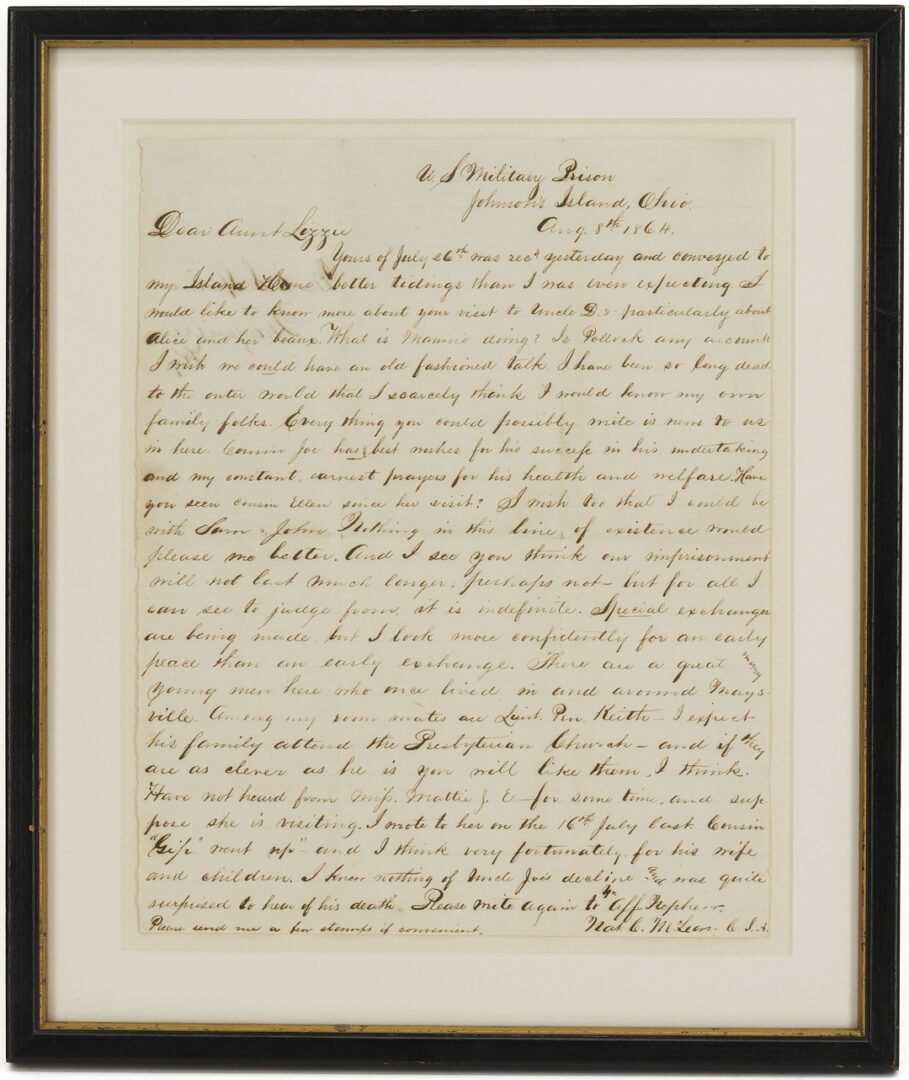 U S Military Prison
Johnson's Island, Ohio.
Aug. 8th 1864.
Dear Aunt Lizzie
Yours of July 26th was recd yesterday and conveyed to
my Island Home better tidings than I was even expecting I
would like to know more about your visit to Uncle D.s particularly about
Alice and her beaux. What is Mannie doing? Is Pollock any account
I wish we could have an old fashioned talk. I have been so long dead
to the outer world that I scarcely think I would know my own
family folks. Every thing you could possibly write is news to us
in here. Cousin Joe has best wishes for his success in his undertaking
and my constant, earnest prayers for his health and welfare. Have
you seen cousin Ellen since her visit? I wish too that I could be
with Sam & John Nothing in this line of existence would
please me better. And I see you think our imprisonment
will not last much longer; perhaps not - but for all I
can see to judge from, it is indefinite. Special exchanges
are being made but I look more confidently for an early
peace than an early exchange. There are a great many
young men here who once lived in and around Mays-
ville. Among my room mates are Lieut. Keith - I expect
his family attend the Presbyterian Church - and if they
are as clever as he is you will like them, I think.
Have not heard from Miss. Mattie J. E - for some time, and sup-
pose she is visiting. I wrote to her on the 16th July last. Cousin
"Gip" went up" - and I think very fortunately for his wife
and children. I knew nothing of Uncle Joe's decline and was quite
surprised to hear of his death. Please write again to yr Aff. Nephew,
Please send me a few stamps if convenient. Nat C. McLean. C. S. A.